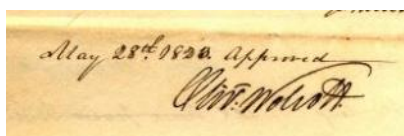 May 28th. 1823. Approved
Oliv: Wolcott.